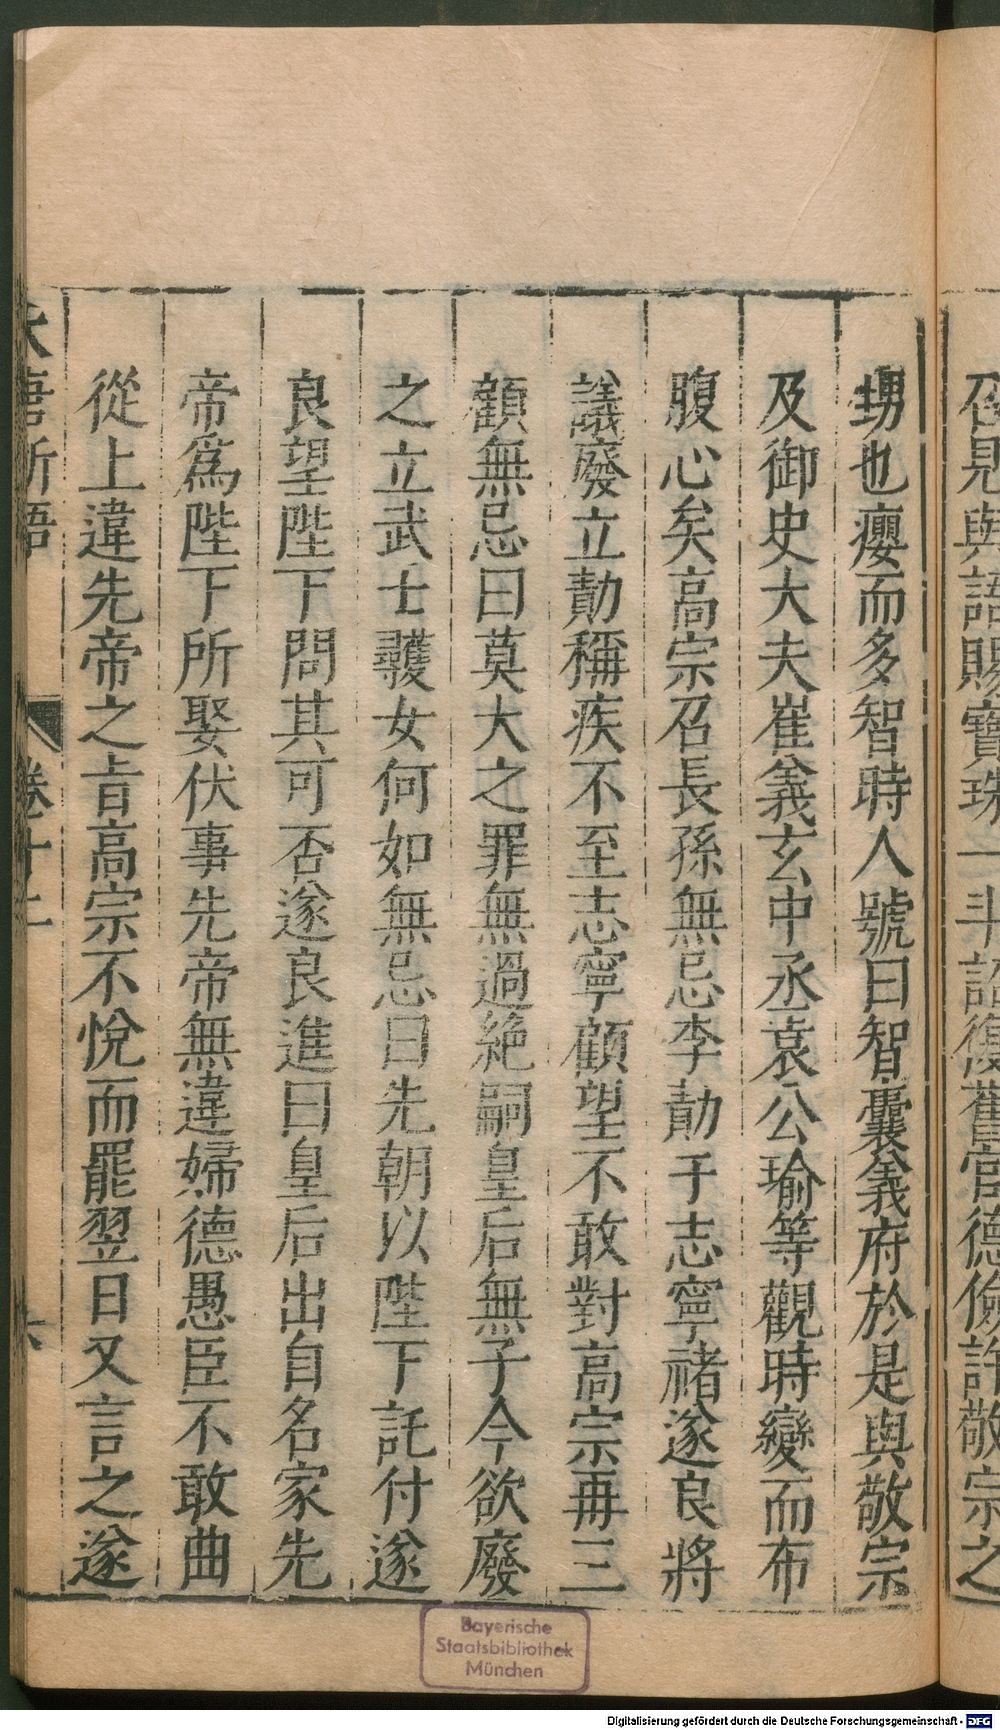 召見與語賜寶珠一斗詔復舊官德儉許敬宗之
甥也癭而多智時人號曰智囊義府於是與敬宗
及御史大夫崔義玄中丞袁公瑜等觀時變而布
腹心矣高宗召長孫無忌李勣于志寧褚遂良將
議廢立勣稱疾不至志寧顧望不敢對高宗再三
顧無忌曰莫大之罪無過絕嗣皇后無子今欲廢
之立武士彠女何如無忌曰先朝以陛下託付遂
良望陛下問其可否遂良進曰皇后出自名家先
帝爲陛下所娶伏事先帝無違婦德愚臣不敢曲
從上違先帝之旨高宗不悅而罷翌日又言之遂
大唐新語 卷十二 六
Bayerische
Staatsbibliothek
München
Digitalisierung gefördert durch die Deutsche Forschungsgemeinschaft - DFG